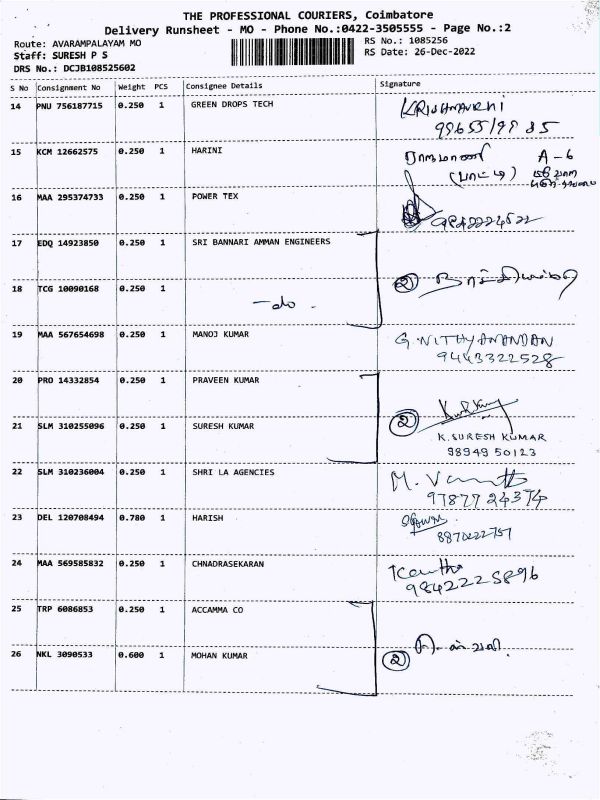 THE PROFESSIONAL COURIERS, Coimbatore
Delivery Runsheet - MO - Phone No.:0422-3505555 - Page No.:2
Route: AVARAMPALAYAM MO
RS No.: 1085256
Staff: SURESH P S
RS Date: 26-Dec-2022
DRS No.: DCJB108525602
S No Consignment No Weight PCS Consignee Details Signature
14 PNU 756187715 0.250 1 GREEN DROPS TECH
15 KCM 12662575 0.250 1 HARINI A-6
(பாட்டி)
16 MAA 295374733 0.250 1 POWER TEX
17 EDQ 14923850 0.250 1 SRI BANNARI AMMAN ENGINEERS
18 TCG 10090168 0.250 1 -do- 2
19 MAA 567654698 0.250 1 MANOJ KUMAR G. NITHYANANDAN
9443322528
20 PRO 14332854 0.250 1 PRAVEEN KUMAR
21 SLM 310255096 0.250 1 SURESH KUMAR 2
K. SURESH KUMAR
98949 50123
22 SLM 310236004 0.250 1 SHRI LA AGENCIES
97877 24374
23 DEL 120708494 0.780 1 HARISH
8870222757
24 MAA 569585832 0.250 1 CHNADRASEKARAN
9842225896
25 TRP 6086853 0.250 1 ACCAMMA CO
26 NKL 3090533 0.600 1 MOHAN KUMAR 2